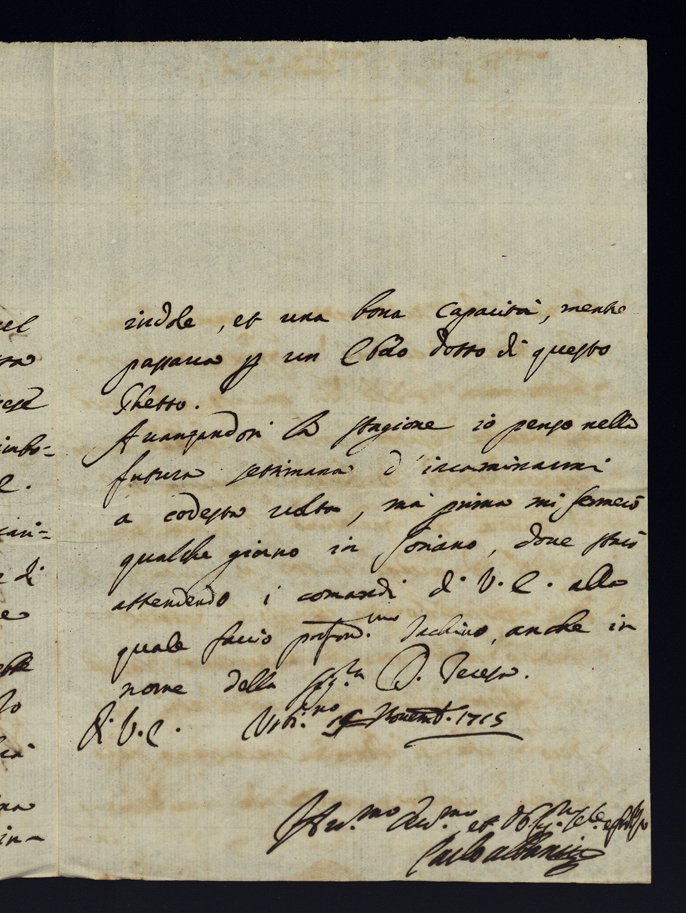 indole, et una bona capacità, mentre
passava p un Ebreo dotto di questo
Ghetto.
Avanzandosi la stagione io penso nella
futura settimana d'incaminarmi
a codesta volta, mà prima mi fermerò
qualche giorno in Soriano, dove starò
attendendo i comandi di V. E. alla
quale faccio profond.mo inchino, anche in
nome della Sig.ra D. Teresa.
Di V. E. Urb.no Novemb. 1715
Hu.mo Dev.mo et
Carlo Albani